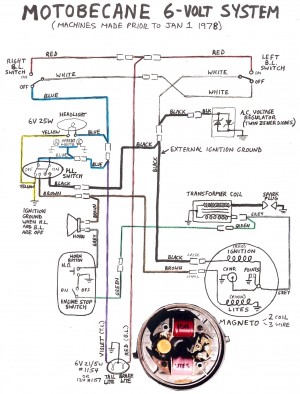 MOTOBECANE 6-VOLT SYSTEM
(MACHINES MADE PRIOR TO JAN 1 1978)
RED
RED
RIGHT
B.L.
SWITCH
LEFT
B.L.
SWITCH
ON
OFF
ON
OFF
WHITE
WHITE
WHITE
BLUE
HEADLIGHT
6V 25W
YELLOW
BLUE
BLUE
BLACK
BLK
A.C. VOLTAGE
REGULATOR
(TWIN ZENER DIODES)
EXTERNAL IGNITION GROUND
OFF
ON
H.L.
SWITCH
YELLOW
BLACK
BROWN
IGNITION
GROUND
WHEN H.L.
AND B.L.
ARE OFF
HORN
TRANSFORMER COIL
SPARK
PLUG
GREY
GREEN
HORN
BUTTON
N.O.
ON
OFF
ENGINE STOP
SWITCH
GREEN
VIOLET (T.L.)
RED (B.L.)
BLACK
BROWN
IGNITION
COND.
POINTS
LITES
GREY
MAGNETO
2 COIL
3 WIRE
6V 21/5W
#1154
OR
#1157
TAIL
LITE
BRAKE
LITE